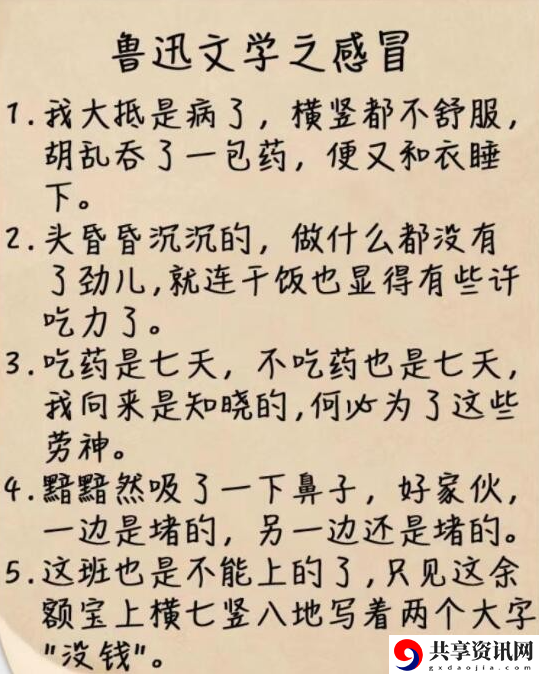 鲁迅文学之感冒
1.我大抵是病了，横竖都不舒服，
胡乱吞了一包药，便又和衣睡
下。
2.头昏昏沉沉的，做什么都没有
了劲儿,就连干饭也显得有些许
吃力了。
3.吃药是七天，不吃药也是七天，
我向来是知晓的,何必为了这些
劳神。
4.黯黯然吸了一下鼻子，好家伙，
一边是堵的，另一边还是堵的。
5.这班也是不能上的了,只见这余
额宝上横七竖八地写着两个大字
"没钱"。
共享资讯网
gxdaojia.com